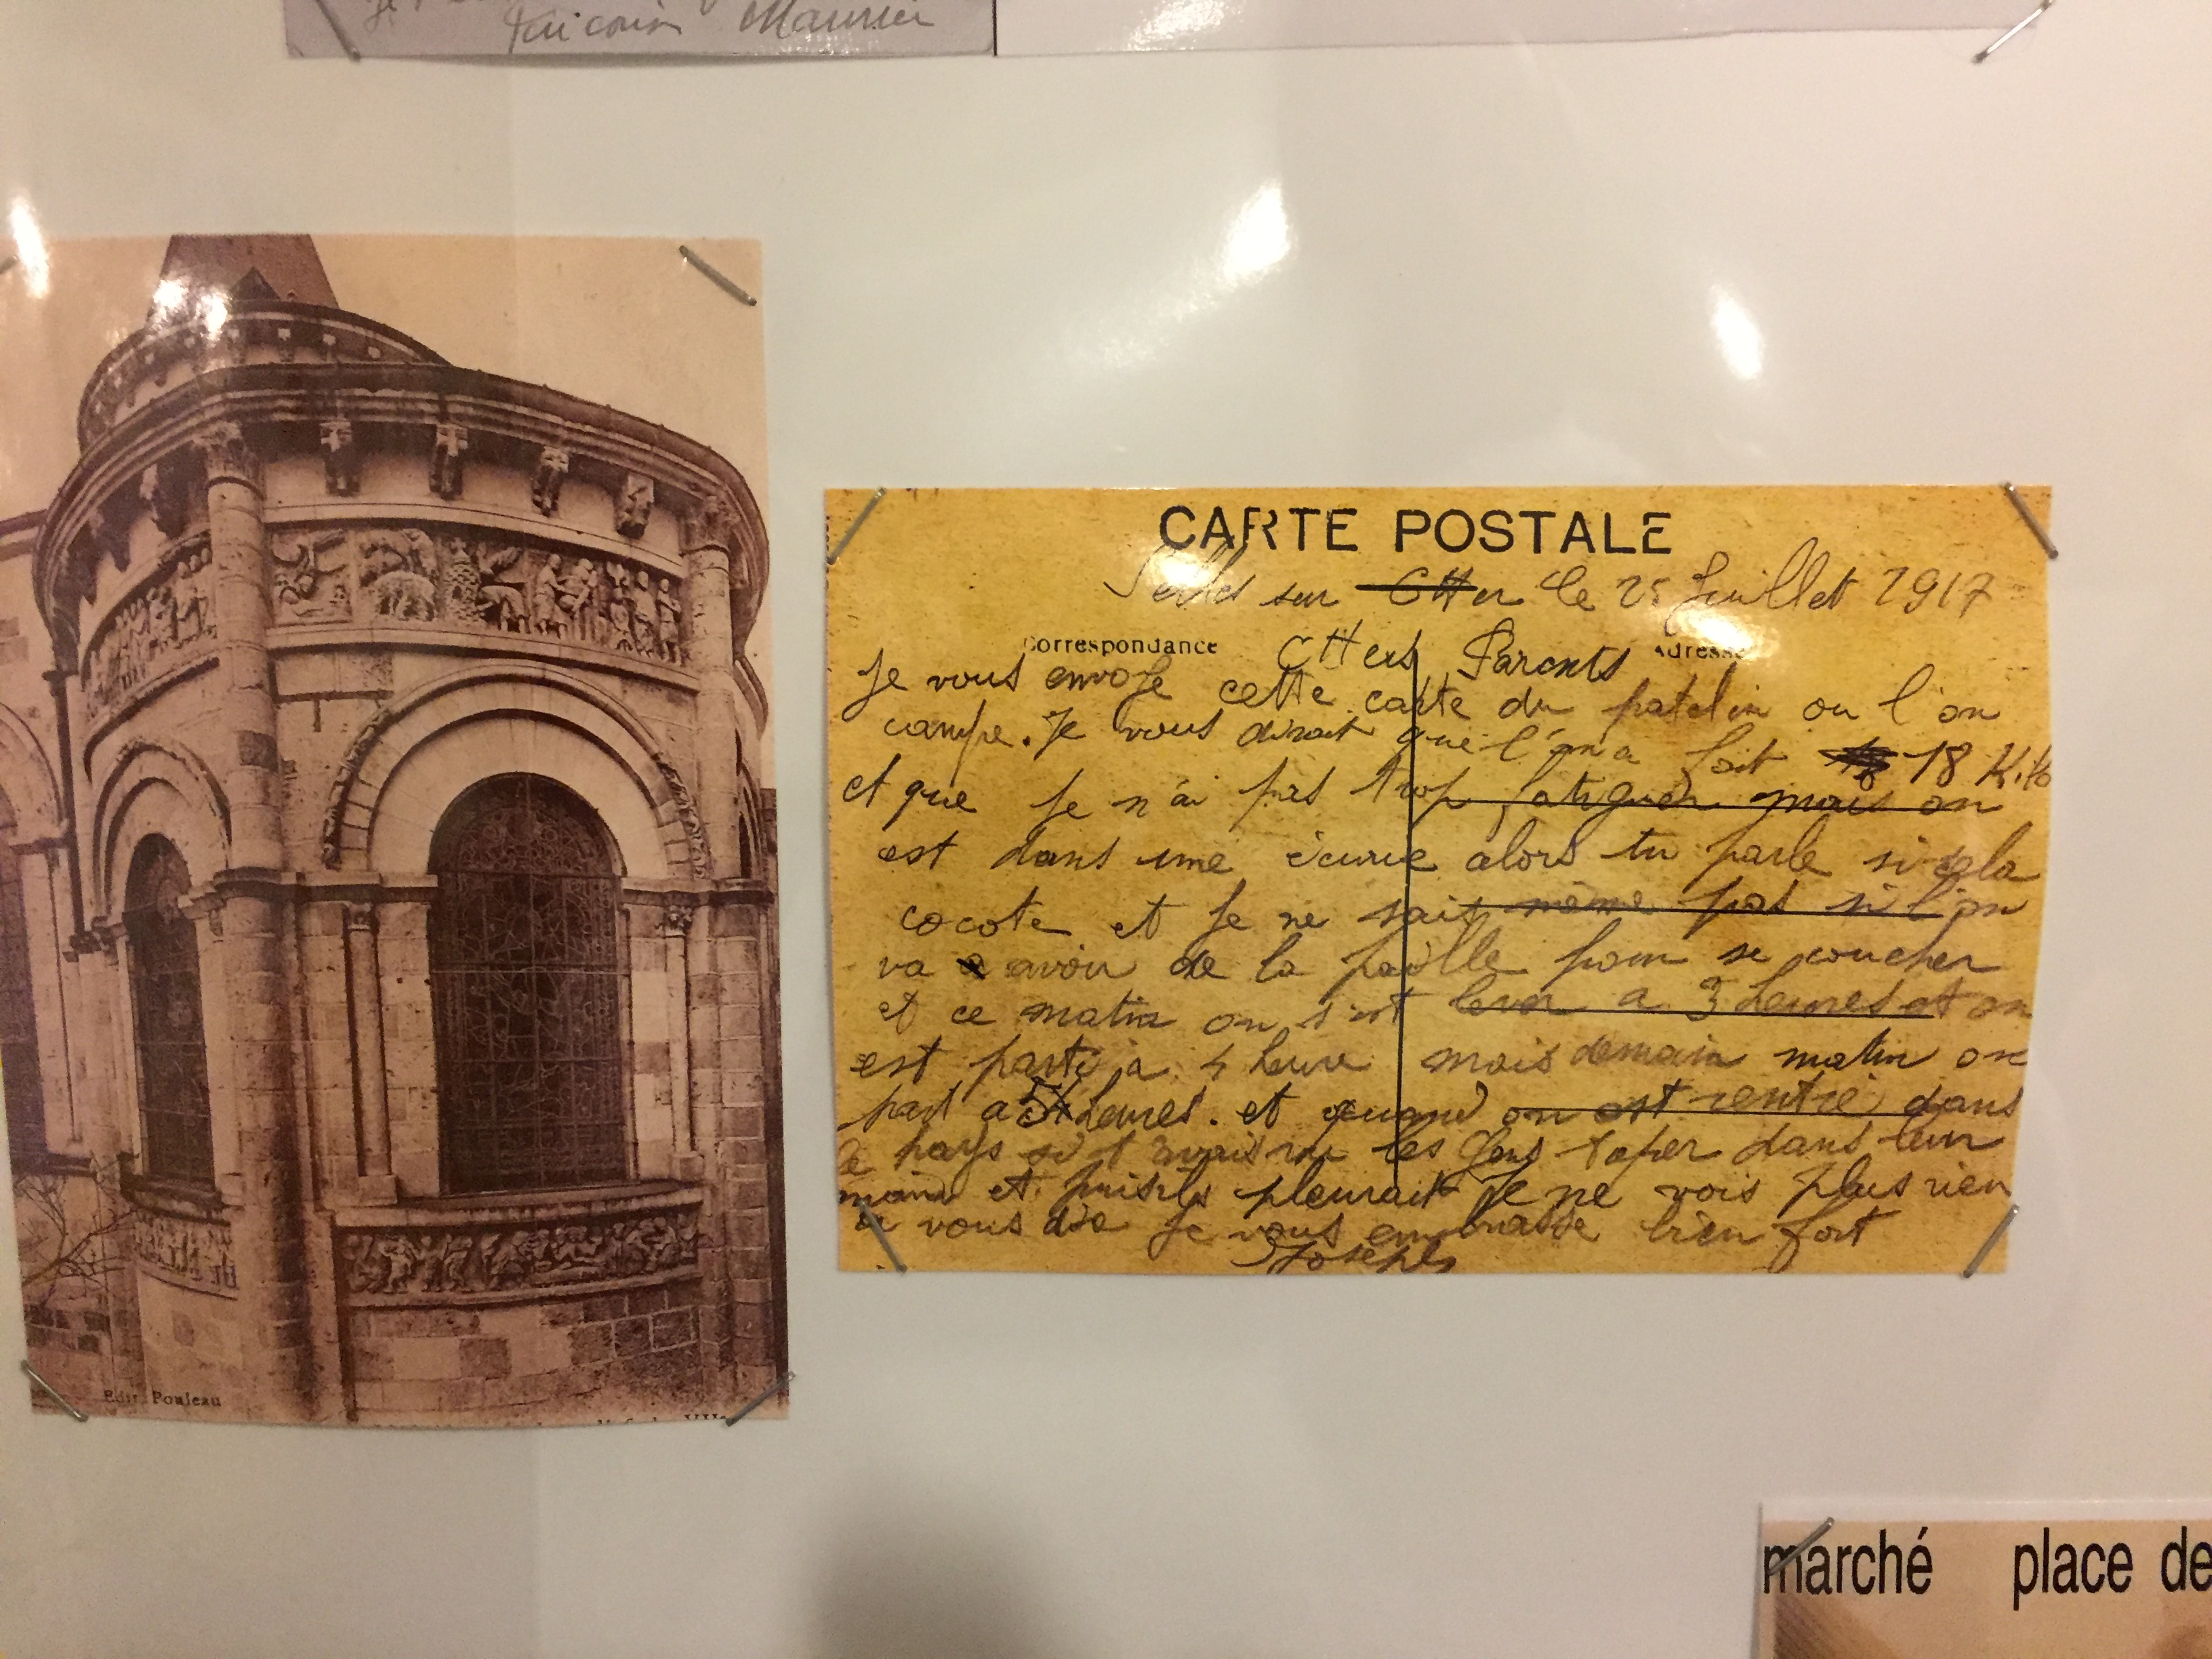 Maurice
CARTE POSTALE
Selles sur Cher le 25 Juillet 1917
Correspondance
Adresse
Chers Parents
Je vous envoje cette carte du patelin ou l'on
campe. Je vous dirait que l'on a fait 18 Kilo
et que je n'ai pas trop fatiguer mais on
est dans une écurie alors tu parle si cela
cocote et je ne sait même pas si l'on
va avoir de la paille pour se coucher
et ce matin on s'est lever a 3 heures et on
est parti a 4 heure mais demain matin on
part a 5 heures. et quand on est rentré dans
le pays si t'avais vu les gens taper dans leur
mains et puis ils pleurait Je ne vois plus rien
a vous dire Je vous embrasse bien fort
Joseph
Edit. Pouleau
marché place de